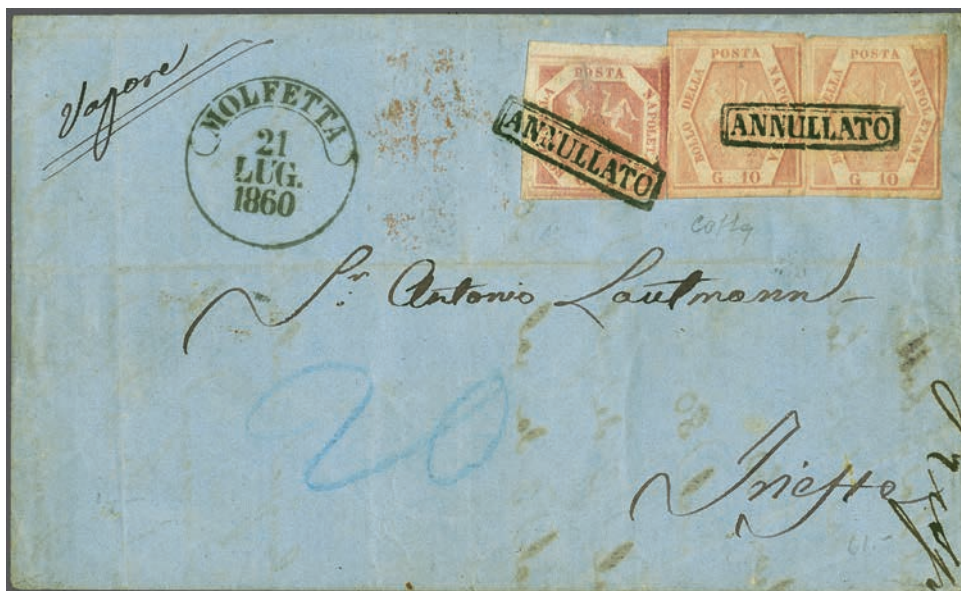 Vapore
MOLFETTA
21
LUG.
1860
POSTA
NAPOLET
ANNULLATO
BOLLO DELLA POSTA NAPOLETANA
G. 10
ANNULLATO
DELLA POSTA NAPOLETANA
G. 10
Sr. Antonio Lautmann
20
Trieste